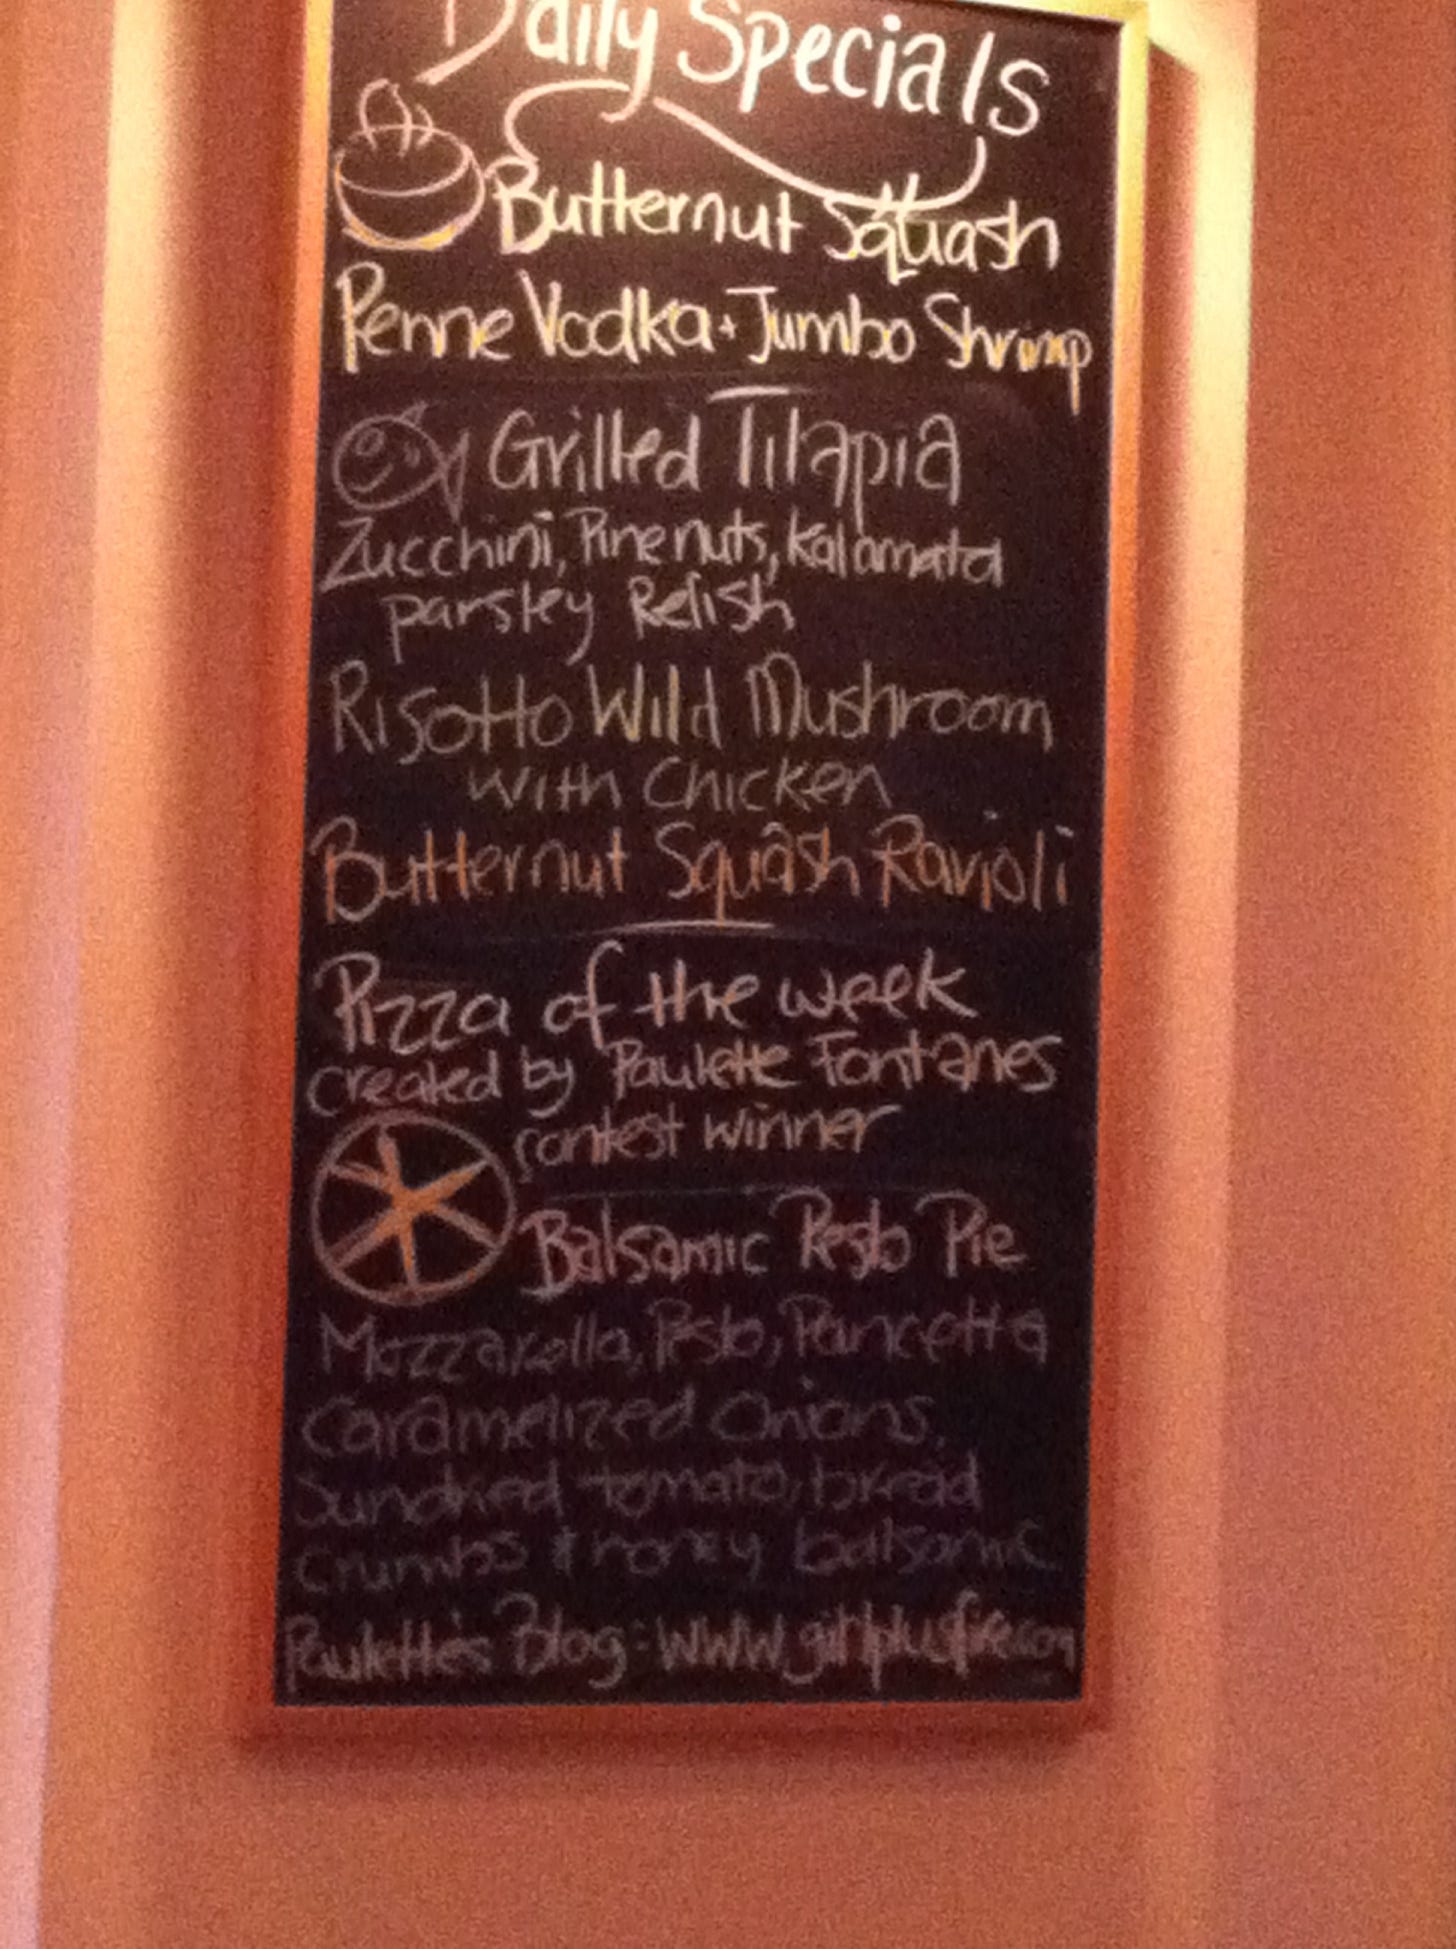 Daily Specials
Butternut Squash
Penne Vodka + Jumbo Shrimp
Grilled Tilapia
Zucchini, Pinenuts, Kalamata
parsley Relish
Risotto Wild Mushroom
with Chicken
Butternut Squash Ravioli
Pizza of the week
created by Paulette Fontanes
contest winner
Balsamic Pesto Pie
Mozzarella, Pesto, Pancetta
Caramelized Onions,
Sundried tomato, bread
crumbs & honey balsamic
Paulette's Blog: www.girlplusfire.com